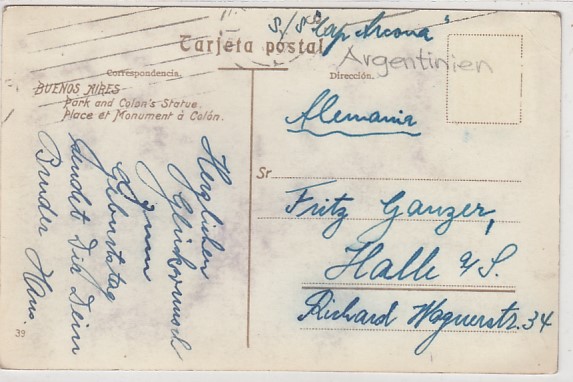 S/S "Cap Arcona"
Tarjeta postal
Argentinien
Correspondencia.
Dirección.
BUENOS AIRES
Park and Colon's Statue.
Place et Monument à Colón.
Alemania
Herzlichen
Glückwunsch
zum
Geburtstag
sendet Dir Dein
Bruder Hans.
Sr
Fritz Ganzer,
Halle a/S.
Richard Wagnerstr. 34
39